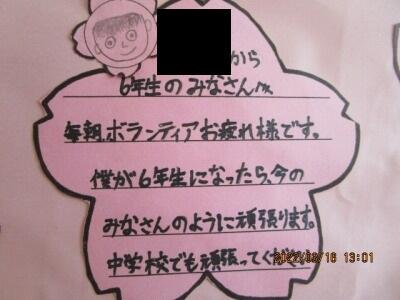 から
6年生のみなさんへ
毎朝、ボランティアお疲れ様です。
僕が6年生になったら、今の
みなさんのように頑張ります。
中学校でも頑張ってください
2022/03/16 13:01